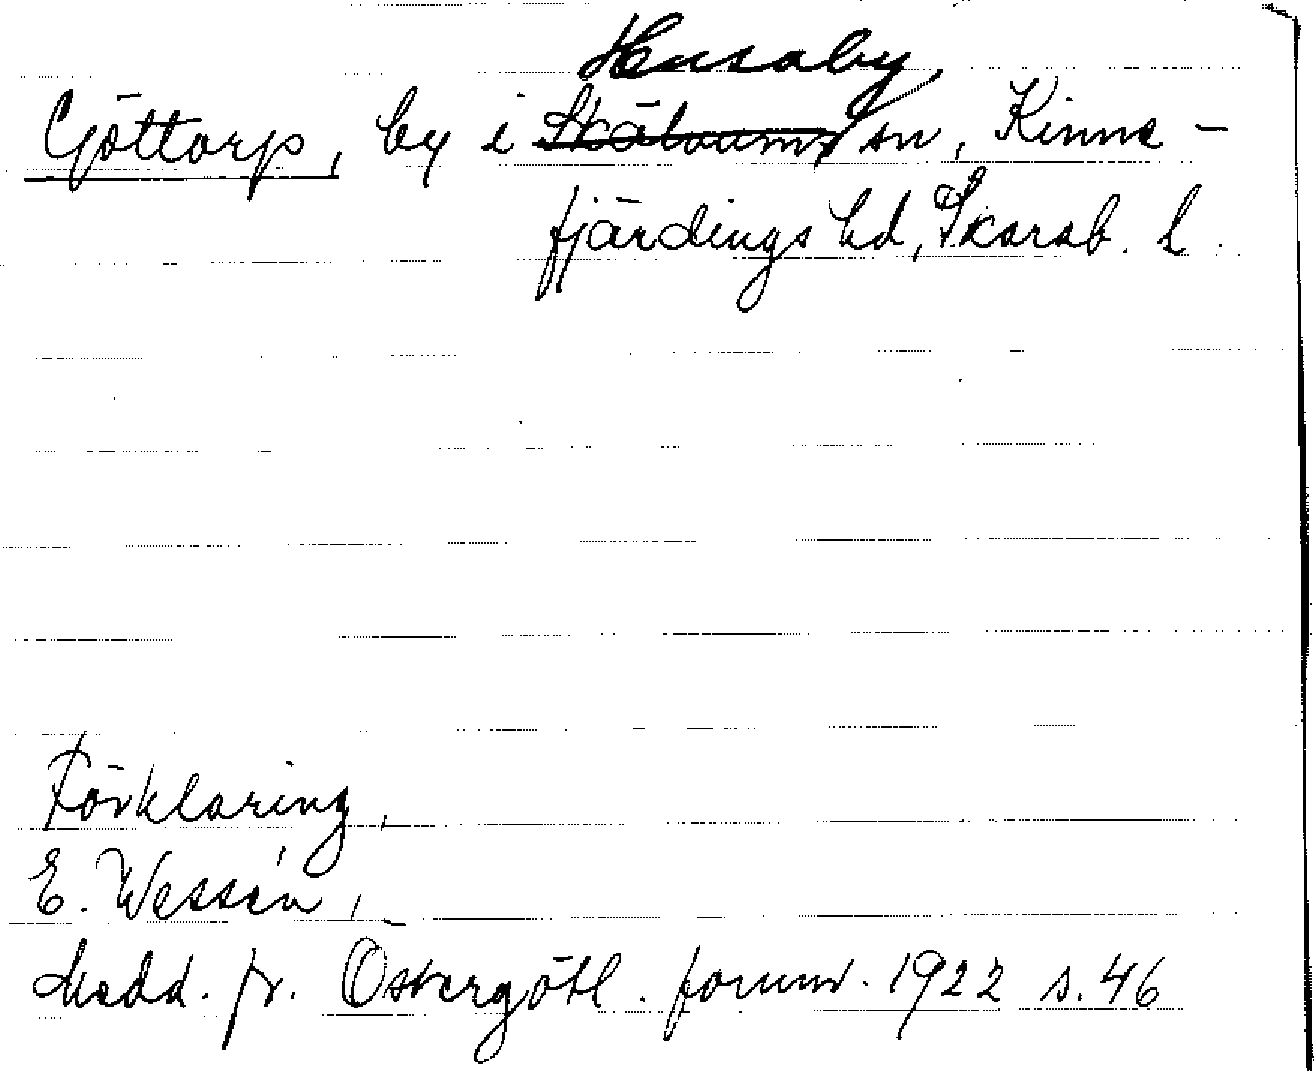 Husaby
Göttorp, by i Skälvums sn, Kinne-
fjärdings hd, Skarab. l.
Förklaring,
E. Wessén,
Medd. fr. Östergötl. fornm. 1922 s. 46